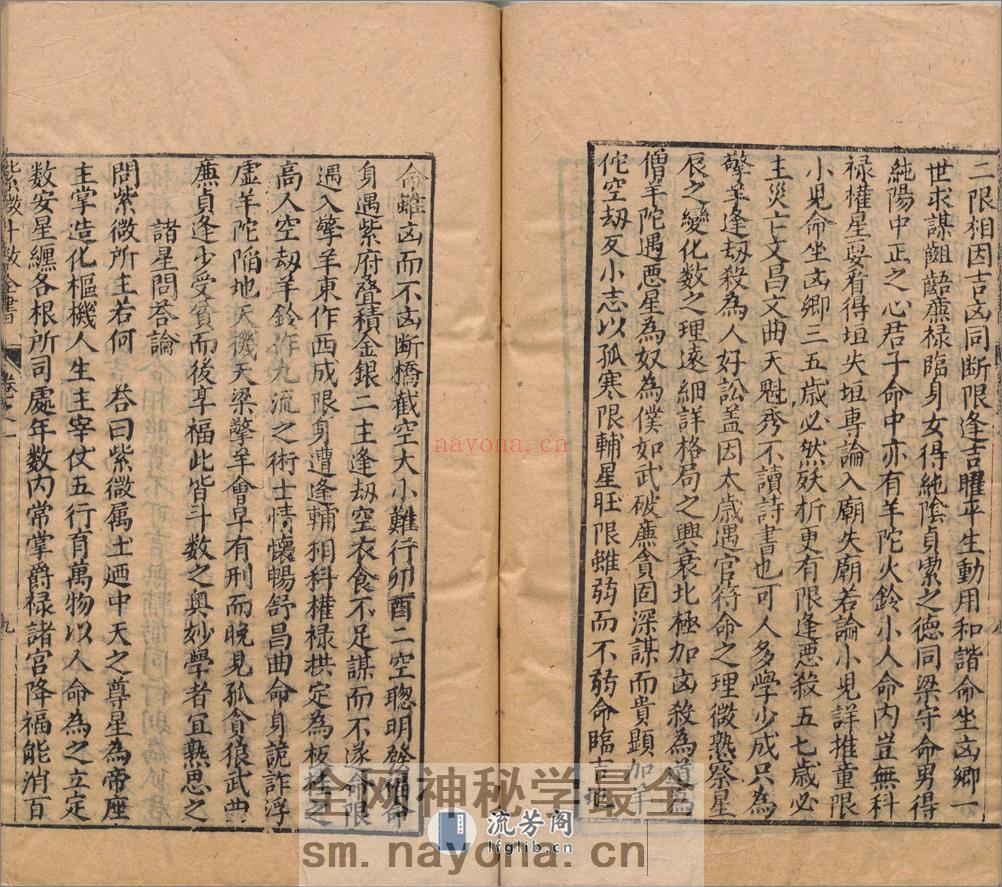 二限相因吉凶同断限逢吉曜平生動用和諧命坐凶鄉一
世求謀齟齬廉禄臨身女得純陰貞索之德同梁守命男得
純陽中正之心君子命中亦有羊陀火鈴小人命内豈無科
禄權星要看得垣失垣專論入廟失廟若論小児詳推童限
小児命坐凶鄉三五歲必然妖析更有限逢悪殺五七歲必
主災亡文昌文曲天魁秀不讀詩書也可人多學少成只為
擎羊逢刼殺為人好訟盖因太歲遇官符命之理微熟察星
辰之變化數之理遠細詳格局之興衰北極加凶殺為道為
僧羊陀遇悪星為奴為僕如武破廉貪固深謀而貴顕加羊
佗空刼反小志以孤寒限輔星旺限雖弱而不弱命臨吉地
命雖凶而不凶断橋截空大小難行卯酉二空聦明發福命
身遇紫府叠積金銀二主逢刼空衣食不足謀而不遂命限
遇入擎羊東作西成限身遭逢輔相科權禄拱定為板桂之
高人空刼羊鈴作九流之術士情懷暢舒昌曲命身詭詐浮
虚羊陀陥地天機天梁擎羊會早有刑而晚見孤貪狼武曲
廉貞逢少受貧而後享福此皆斗数之奥妙學者宜熟思之
諸星問荅論
問紫微所主若何 荅曰紫微属土迺中天之尊星為帝座
主掌造化樞機人生主宰仗五行育萬物以人命為之立定
数安星纏各根所司處年数内常掌爵禄諸宫降福能消百
紫微斗数全書 卷之一 九
nayona.cn
全网神秘学最全
sm.nayona.cn
流芳阁
lfglib.cn